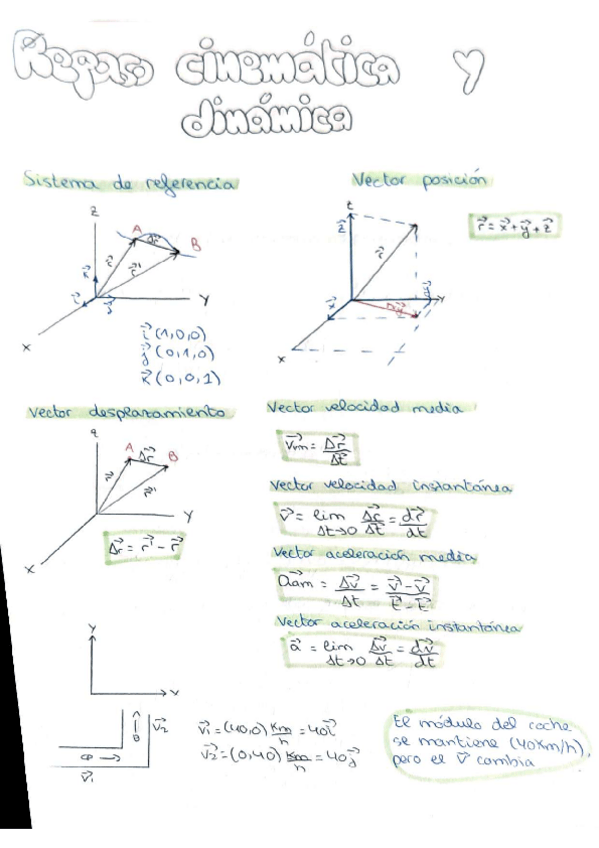 Repaso cinemática y
dinámica
Sistema de referencia
Vector posición
z
A
Δr⃗
B
r⃗
r⃗'
k⃗
i⃗
j⃗
y
x
i⃗ (1,0,0)
j⃗ (0,1,0)
k⃗ (0,0,1)
z
z⃗
r⃗
x⃗
y⃗
y
x
r⃗ = x⃗ + y⃗ + z⃗
Vector desplazamiento
A
Δr⃗
B
r⃗
r⃗'
y
x
Δr⃗ = r⃗' - r⃗
Vector velocidad media
v⃗m = Δr⃗/Δt
Vector velocidad instantánea
v⃗ = lim Δt→0 Δr⃗/Δt = dr⃗/dt
Vector aceleración media
a⃗am = Δv⃗/Δt = v⃗'-v⃗/t⃗'-t⃗
Vector aceleración instantánea
a⃗ = lim Δt→0 Δv⃗/Δt = dv⃗/dt
y
x
v⃗2
v⃗1
v⃗1 = (40,0) Km/h = 40i⃗
v⃗2 = (0,40) Km/h = 40j⃗
El módulo del coche
se mantiene (40Km/h),
pero el v⃗ cambia